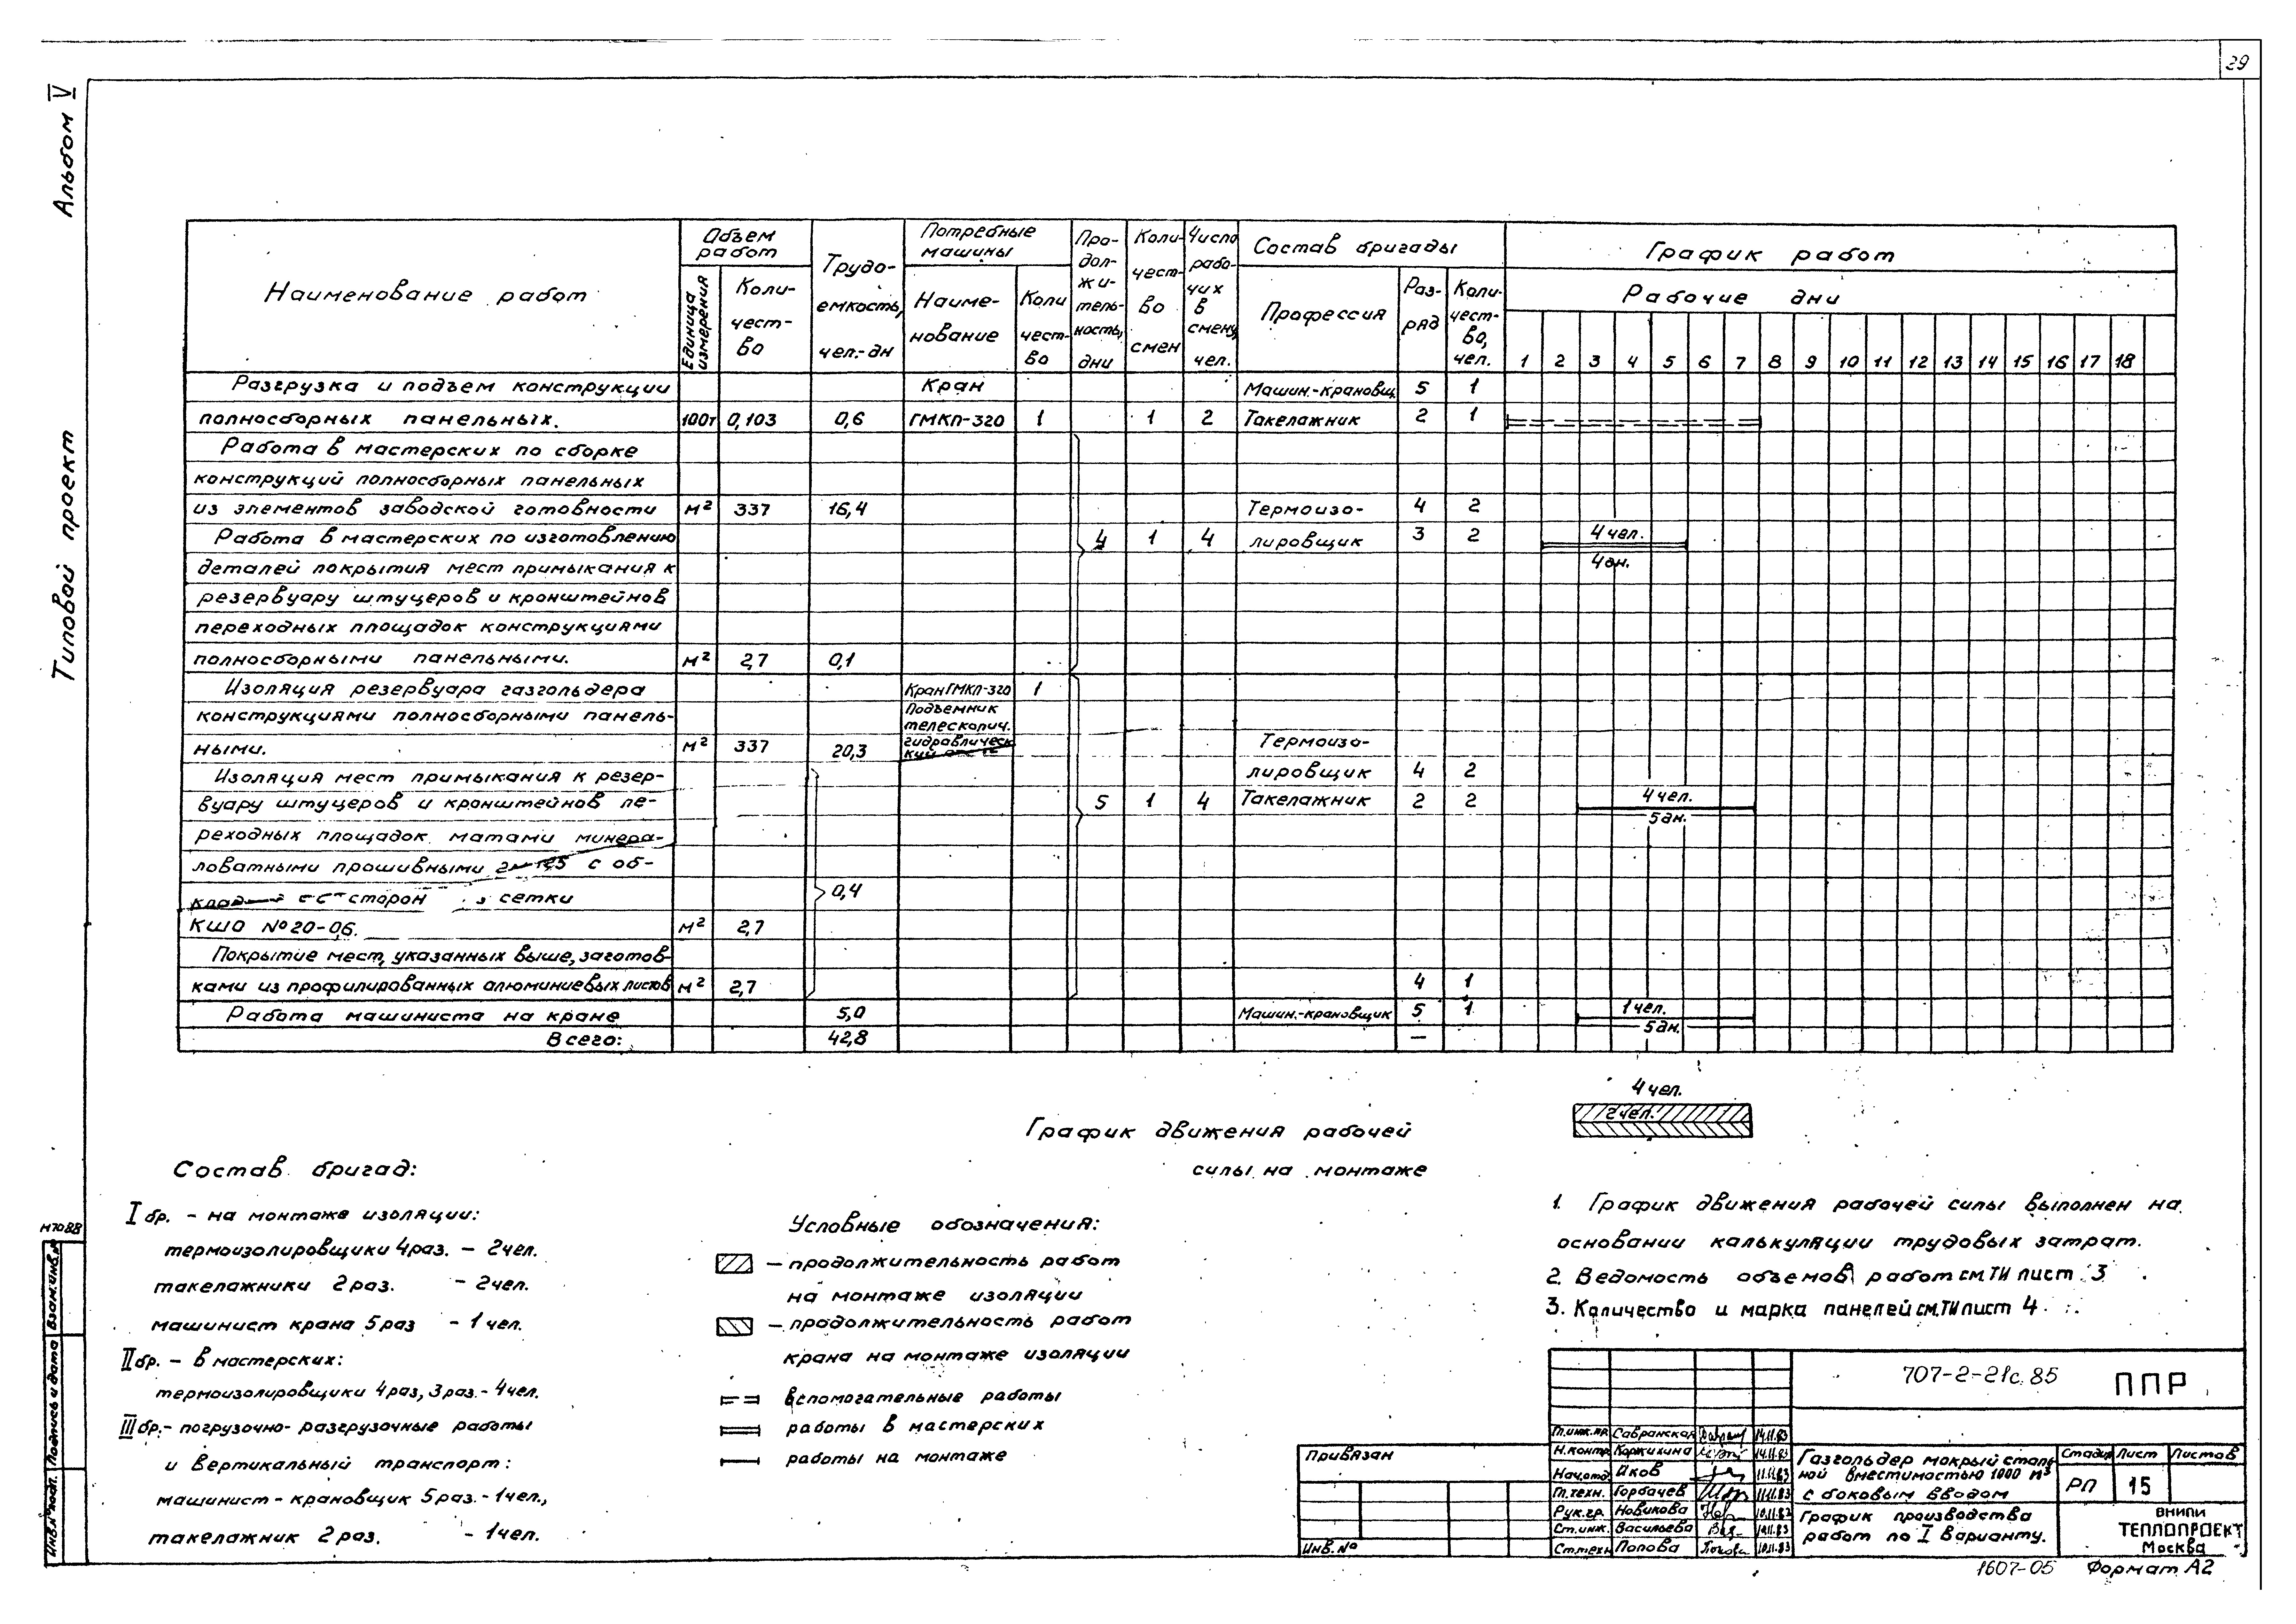 29
Альбом V
Типовой проект
Наименование работ
Объем работ
Единица измерения
Коли-
чест-
во
Трудо-
емкость,
чел.-дн
Потребные машины
Наиме-
нование
Коли
чест-
во
Про-
дол-
жи-
тель-
ность,
дни
Коли-
чест-
во
смен
Число
рабо-
чих
в
смену,
чел.
Состав бригады
Профессия
Раз-
ряд
Коли-
чест-
во,
чел.
График работ
Рабочие дни
1 2 3 4 5 6 7 8 9 10 11 12 13 14 15 16 17 18
Разгрузка и подъем конструкции Кран Машин.-крановщ. 5 1
полносборных панельных. 100т 0,103 0,6 ГМКП-320 1 1 2 Такелажник 2 1
Работа в мастерских по сборке
конструкций полносборных панельных
из элементов заводской готовности м² 337 16,4 Термоизо- 4 2
Работа в мастерских по изготовлению 4 1 4 лировщик 3 2 4 чел.
деталей покрытия мест примыкания к 4дн.
резервуару штуцеров и кронштейнов
переходных площадок конструкциями
полносборными панельными. м² 2,7 0,1
Изоляция резервуара газгольдера Кран ГМКП-320 1
конструкциями полносборными панель- Подъемник
телескопич.
ными. м² 337 20,3 гидравличес Термоизо-
кий
Изоляция мест примыкания к резер- лировщик 4 2
вуару штуцеров и кронштейнов пе- 5 1 4 Такелажник 2 2 4 чел.
5 дн.
реходных площадок матами минера-
ловатными прошивными с об-
сторон сетки 0,4
КШО №20-06. м² 2,7
Покрытие мест, указанных выше, заготов-
ками из профилированных алюминиевых листов м² 2,7 4 1
Работа машиниста на кране 5,0 Машин.-крановщик 5 1 1 чел.
5 дн.
Всего: 42,8 —
4 чел.
2 чел.
График движения рабочей
силы на монтаже
Состав бригад:
I бр. - на монтаже изоляции:
термоизолировщики 4 раз. - 2 чел.
такелажники 2 раз. - 2 чел.
машинист крана 5 раз - 1 чел.
II бр. - в мастерских:
термоизолировщики 4 раз, 3 раз. - 4 чел.
III бр. - погрузочно-разгрузочные работы
и вертикальный транспорт:
машинист-крановщик 5 раз. - 1 чел.,
такелажник 2 раз. - 1 чел.
Условные обозначения:
- продолжительность работ
на монтаже изоляции
- продолжительность работ
крана на монтаже изоляции
вспомогательные работы
работы в мастерских
работы на монтаже
1. График движения рабочей силы выполнен на
основании калькуляции трудовых затрат.
2. Ведомость объемов работ см. ТИ лист 3
3. Количество и марка панелей см. ТИ лист 4
М7088
Взам. инв. №
Подпись и дата
Инв. № подл.
Привязан
Инв. №
707-2-21с.85 ППР
Гл. инж. пр. Савранская 14.11.83
Н. контр. Коржихина 14.11.83
Нач. отд. Яков 11.11.83
Гл. техн. Горбачев 11.11.83
Рук. гр. Новикова 10.11.83
Ст. инж. Васильева 10.11.83
Ст. техн. Попова 10.11.83
Газгольдер мокрый сталь-
ной вместимостью 1000 м³
с боковым вводом
Стадия Лист Листов
РП 15
График производства
работ по I варианту.
ВНИПИ
ТЕПЛОПРОЕКТ
Москва
1607-05 Формат А2